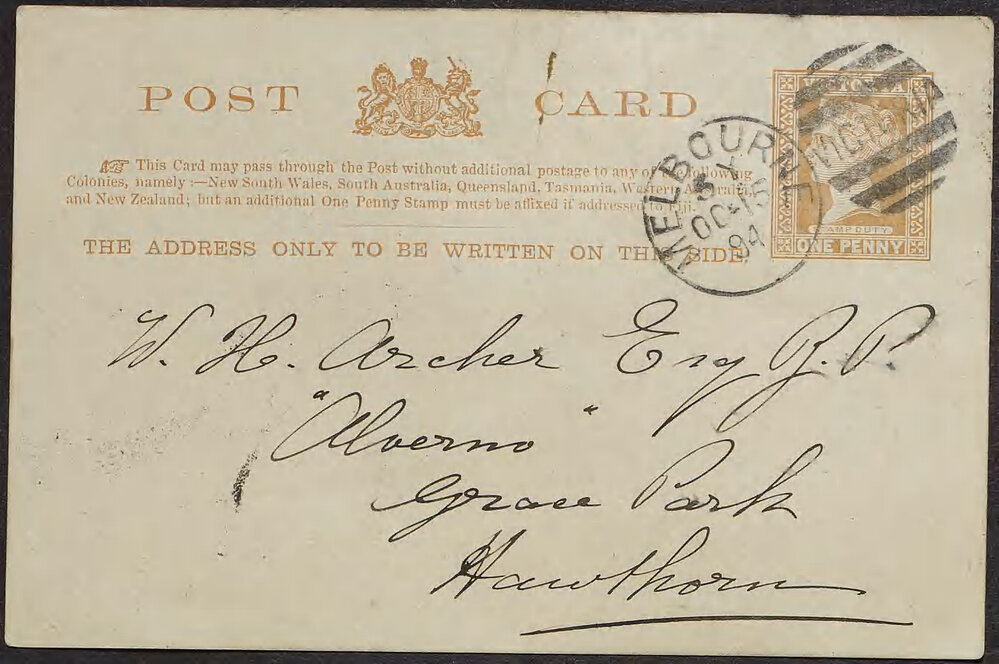 POST CARD
This Card may pass through the Post without additional postage to any of the following
Colonies, namely :—New South Wales, South Australia, Queensland, Tasmania, Western Australia
and New Zealand; but an additional One Penny Stamp must be affixed if addressed to Fiji.
THE ADDRESS ONLY TO BE WRITTEN ON THIS SIDE.
VICTORIA
STAMP DUTY
ONE PENNY
MELBOURNE
OC 15
94
W. H. Archer Esq J. P.
"Alverno"
Grace Park
Hawthorn